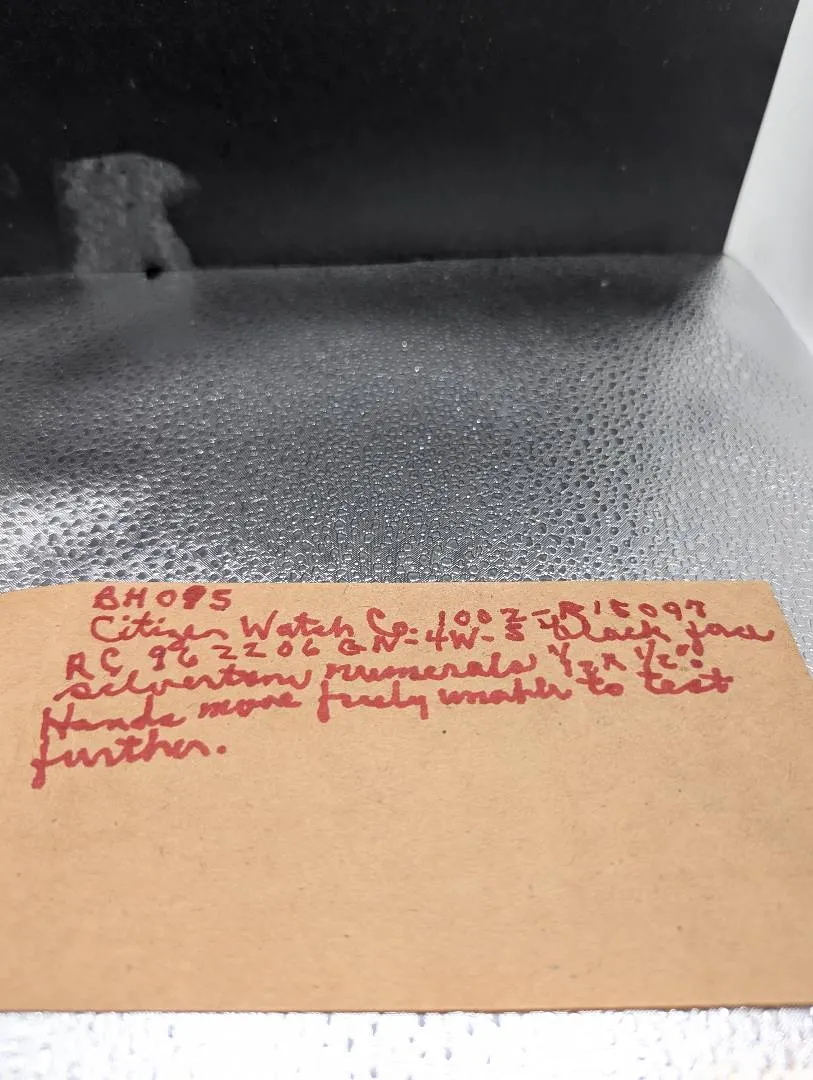 BH095
Citizen Watch Co. 1002-R15097
RC 962206 GN-4W-S black face
silvertone numerals 1/2 x 1/2".
Hands move freely unable to test
further.